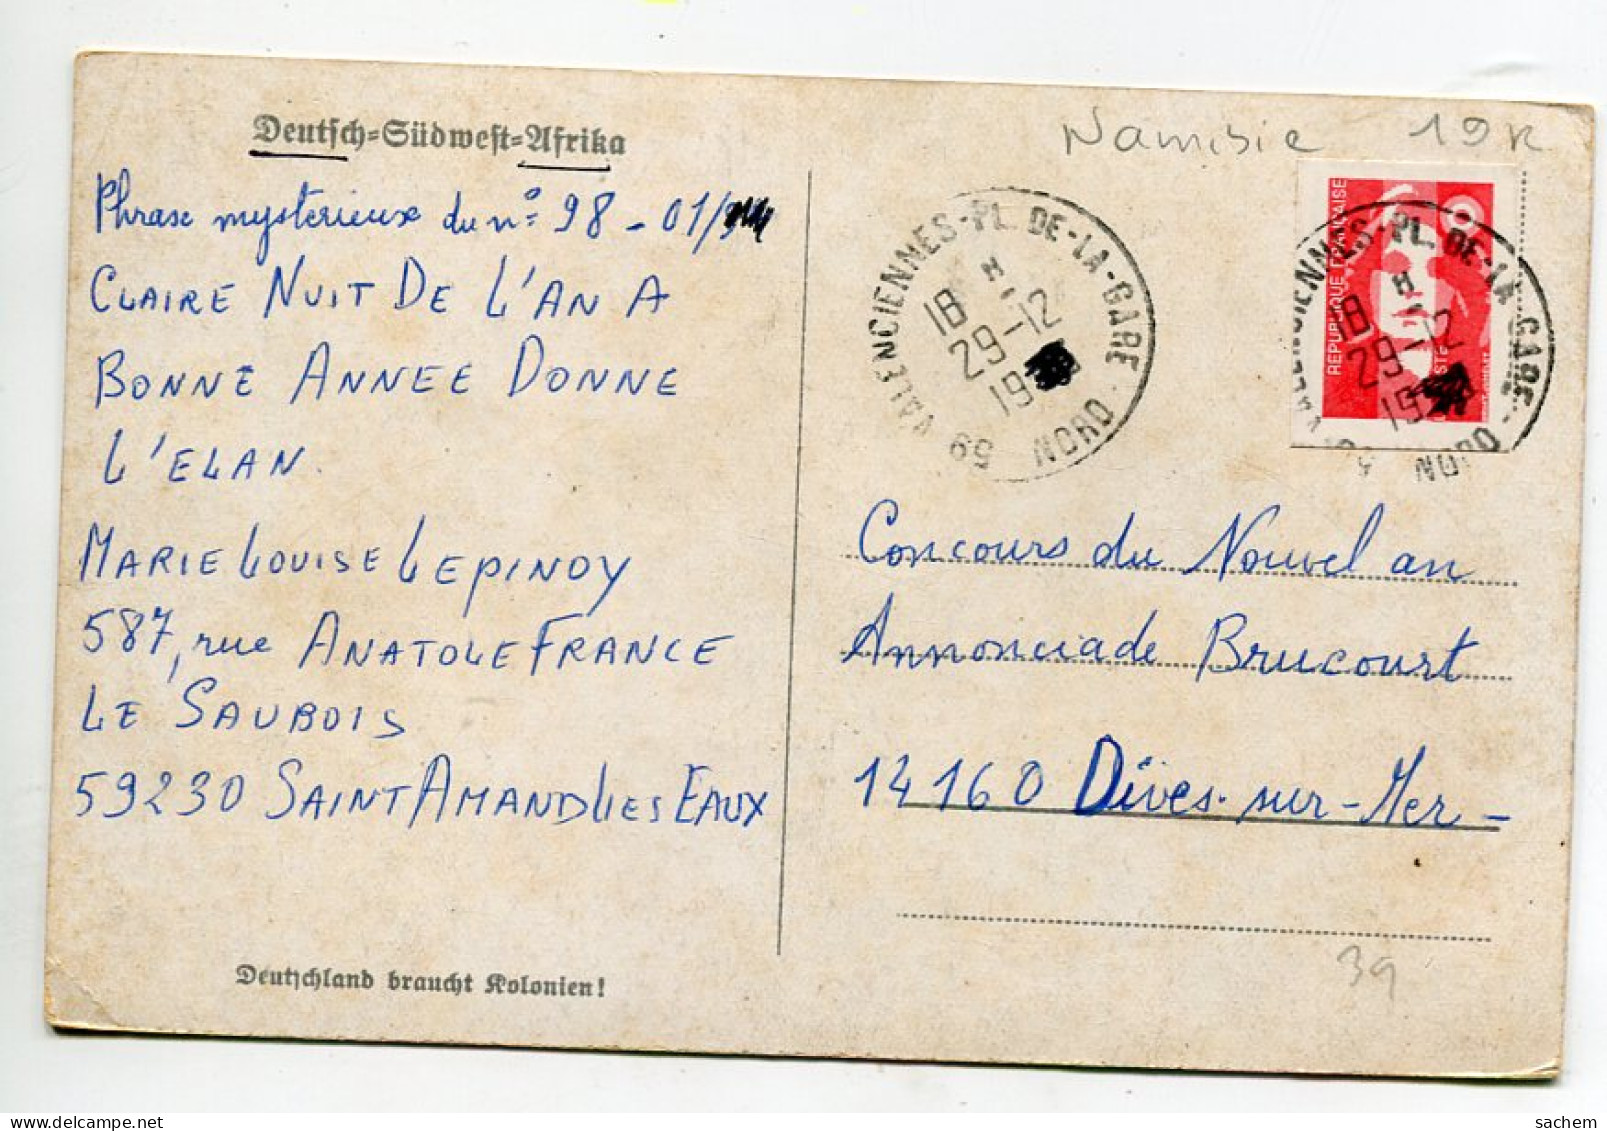 Deutsch=Südwest=Afrika
Phrase mysterieuse du n° 98 - 01/
CLAIRE NUIT DE L'AN A
BONNE ANNEE DONNE
L'ELAN.
MARIE LOUISE LEPINOY
587, rue ANATOLE FRANCE
LE SAUBOIS
59230 SAINT AMAND LES EAUX
Deutschland braucht Kolonien!
Namibie 19K
59 VALENCIENNES-PL. DE-LA-GARE · NORD
18 H
29-12
19
REPUBLIQUE FRANÇAISE
VALENCIENNES-PL. DE-LA-GARE - NORD
18 H
29-12
19
Concours du Nouvel an
Annonciade Brucourt
14160 Dives-sur-Mer-
39
sachem